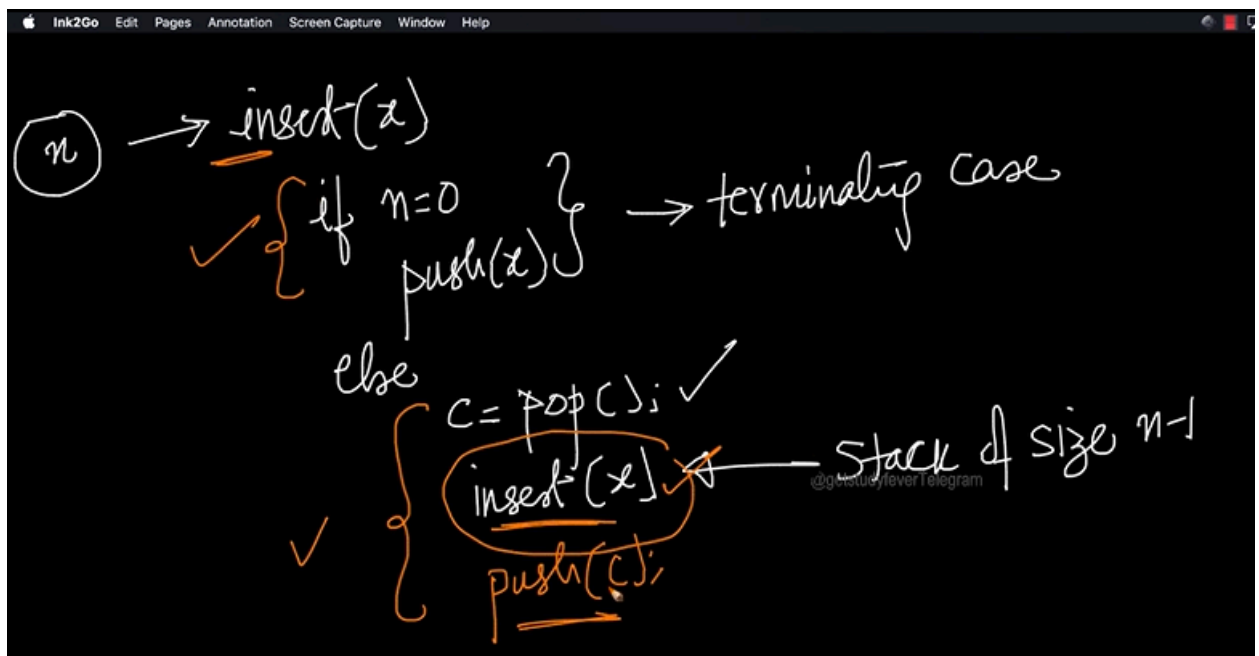 Ink2Go Edit Pages Annotation Screen Capture Window Help
n → insert(x)
if n=0 → terminating case
push(x)
else
c = pop();
insert(x) ← Stack of size n-1
@getstudyfeverTelegram
push(c);